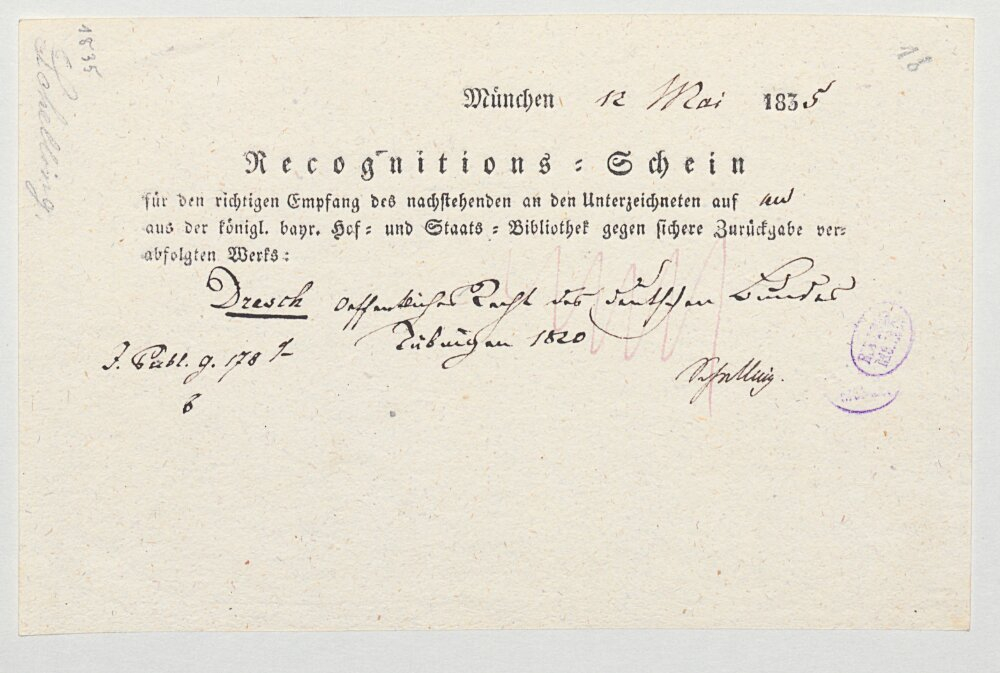 1835
Schelling.
18
München 12 Mai 1835
Recognitions-Schein
für den richtigen Empfang des nachstehenden an den Unterzeichneten auf
aus der königl. bayr. Hof- und Staats-Bibliothek gegen sichere Zurückgabe ver-
abfolgten Werks:
Dresch Oeffentliches Recht des deutschen Bundes
Tübingen 1820
J. Publ. g. 178
Schelling.